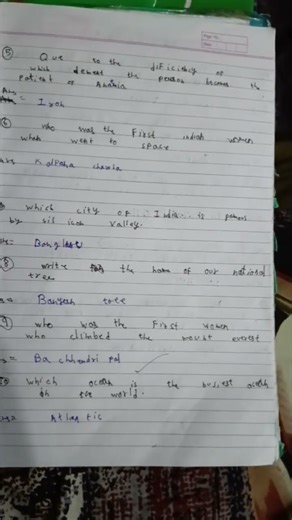 ⑤ Que to the dificiency of
which elemeat the person become the
patient of Anamia
Ans = Iron
⑥ who was the First indian women
whon went to space
Ans Kalpana chawla
which city of India is famous
by silicon valley.
Ans: Banglore
⑧ write the name of our national
tree
Banyan tree
⑨ who was the First women
who climbed the mount everest
= Bachhendri pal
10 which ocean is the busiest ocean
in the world.
Atlantic